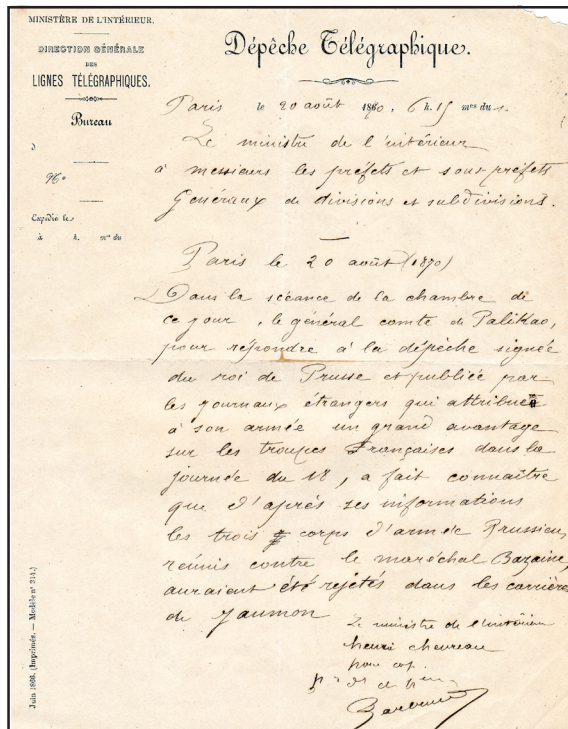 MINISTÈRE DE L'INTÉRIEUR.
DIRECTION GÉNÉRALE
DES
LIGNES TÉLÉGRAPHIQUES.
Bureau
d
No
Expédié le
à h. m. du
Dépêche Télégraphique.
Paris le 20 août 1870, 6 h. 15 mes du s.
Le ministre de l'intérieur
à messieurs les préfets et sous-préfets
Généraux de divisions et subdivisions.
Paris le 20 août (1870)
Dans la scéance de la chambre de
ce jour, le général comte de Palikao,
pour répondre à la dépèche signée
du roi de Prusse et publiée par
les journaux étrangers qui attribue
à son armée un grand avantage
sur les troupes Françaises dans la
journée du 18, a fait connaître
que d'après ses informations
les trois corps d'armée Prussiens
réunis contre le maréchal Bazaine,
auraient été rejetés dans les carrières
de Jaumon
Le ministre de l'intérieur
henri chevreau
pour cop.
Juin 1866. (Imprimés. — Modèle no 314.)